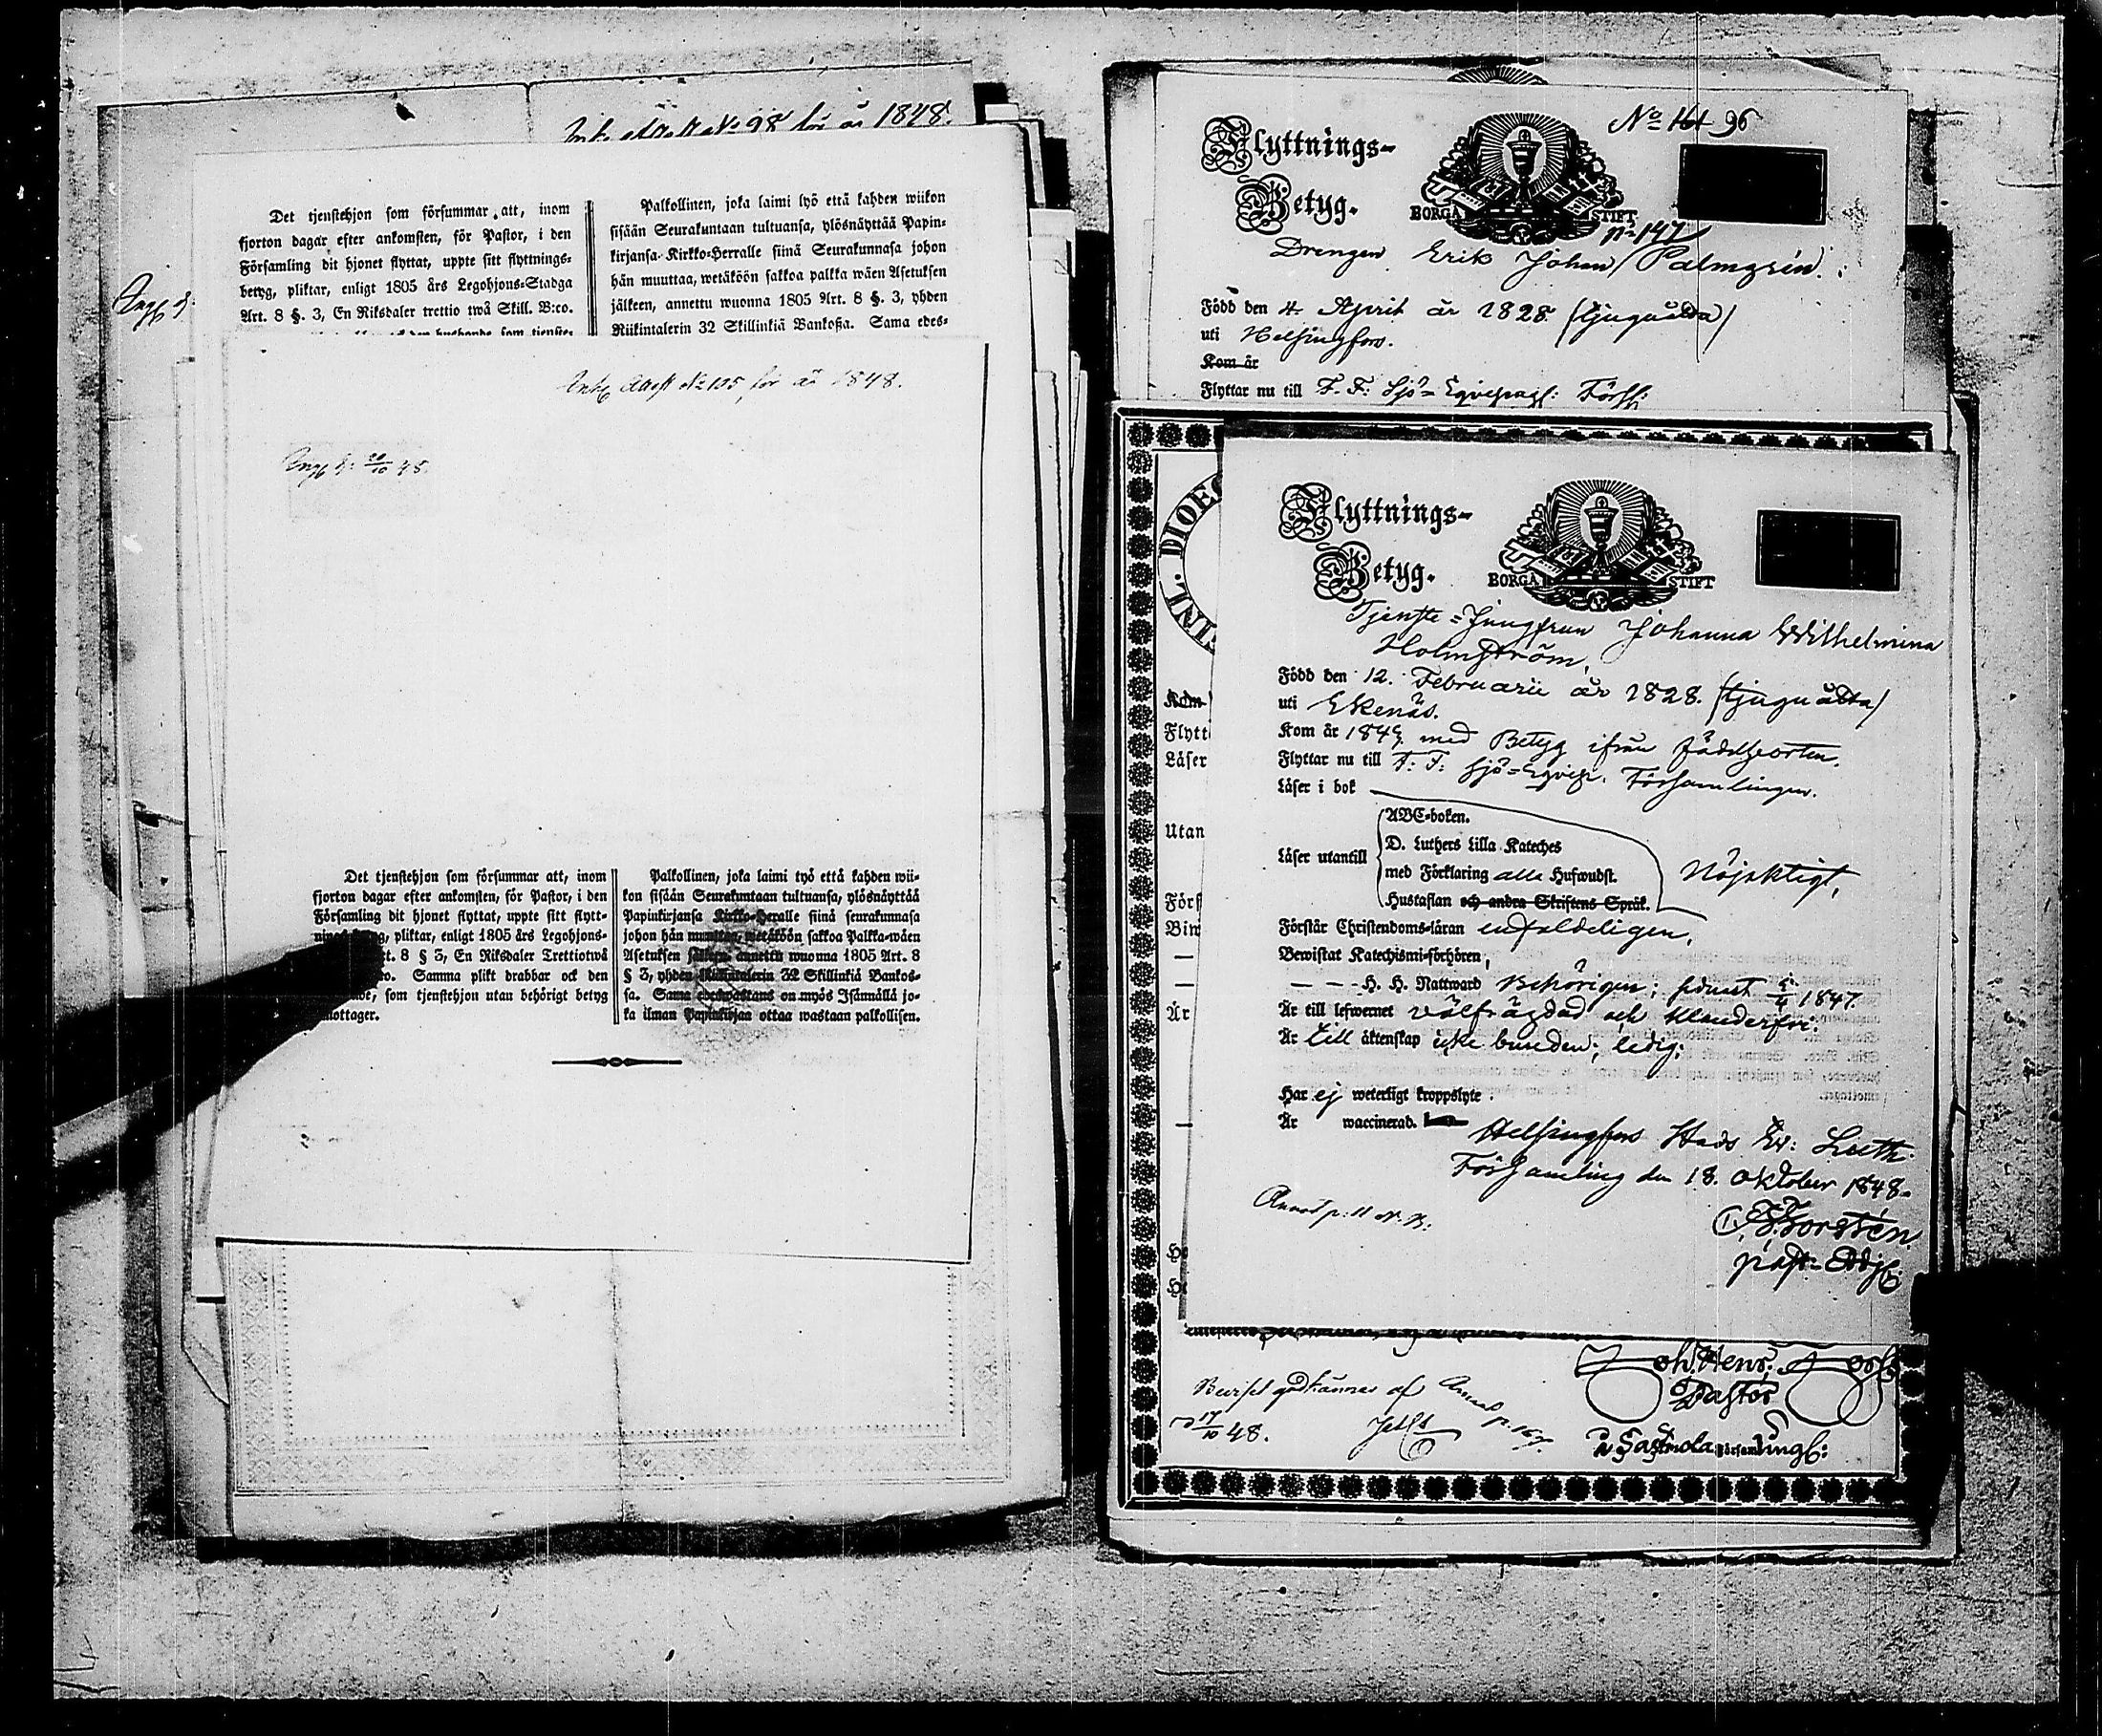 98 för år 1848.
Det tjenstehjon som försummar att, inom
fjorton dagar efter ankomsten, för Pastor, i den
Församling dit hjonet flyttat, uppte sitt flyttnings-
betyg, pliktar, enligt 1805 års Legohjons-Stadga
Art. 8 §. 3, En Riksdaler trettio twå Skill. B:co.
Palkollinen, joka laimi lyö että kahden wiikon
sisään Seurakuntaan tultuansa, ylösnäyttää Papin-
kirjansa Kirkko-Herralle siinä Seurakunnasa johon
hän muuttaa, wetäköön sakkoa palkka wäen Asetuksen
jälkeen, annettu wuonna 1805 Art. 8 §. 3, yhden
Riikintalerin 32 Skillinkiä Bankoßa. Sama edes-
Attest No 105 för år 1848.
Det tjenstehjon som försummar att, inom
fjorton dagar efter ankomsten, för Pastor, i den
Församling dit hjonet flyttat, uppte sitt flytt-
pliktar, enligt 1805 års Legohjons-
8 § 3, En Riksdaler Trettiotwå
Samma plikt drabbar ock den
som tjenstehjon utan behörigt betyg
mottager.
Palkollinen, joka laimi työ että kahden wii-
kon sisään Seurakuntaan tultuansa, ylösnäyttää
Papinkirjansa Kirkko-Heralle siinä seurakunnasa
johon hän muuttaa, wetäköön sakkoa Palkka-wäen
Asetuksen jälkeen annettu wuonna 1805 Art. 8
§ 3, yhden Riikintalerin 32 Skillinkiä Bankos-
sa. Sama edeswastaus on myös Isännällä jo-
ka ilman Papinkirjaa ottaa wastaan palkollisen.
No 96
Flyttnings-
Betyg.
BORGÅ STIFT
p. 147
Drengen Erik Johan Palmgrén.
Född den 4 April år 1828 (tjuguåtta)
uti Helsingfors.
Kom år
Flyttar nu till F. F: Sjö-Eqvipage: Förs:
INL. DIOE
Kom
Flytt
Läser
Utan
Förs
Biw
Är
Flyttnings-
Betyg.
BORGÅ STIFT
Tjenste-Jungfrun Johanna Wilhelmina
Holmström,
Född den 12. Februarii år 1828. (tjuguåtta)
uti Ekenäs.
Kom år 1847 med Betyg ifrån födelseorten.
Flyttar nu till F: F: Sjö-Eqvip. Församlingen.
Läser i bok
ABC-boken.
D. Luthers Lilla Kateches
Läser utantill
med Förklaring alla Hufwudst.
Nöjaktigt,
Hustaflan och andra Skriftens Språk.
Förstår Christendoms-läran enfaldeligen,
Bewistat Katechismi-förhören,
— — - H. H. Nattward behörigen; sednast 5/4 1847
Är till lefwernet välfrägdad och klanderfri.
Är till äktenskap icke bunden; ledig;
Har ej weterligt kroppslyte.
Är waccinerad.
Helsingfors Stads Ev: Luth.
Församling den 18. Oktober 1848.
Annot p: 11 N. B:
Forstén.
past. Adj:
Beviset godkännes af
17/10 48.
Joh. Henr.
Pastor
i Sastmola Församling: